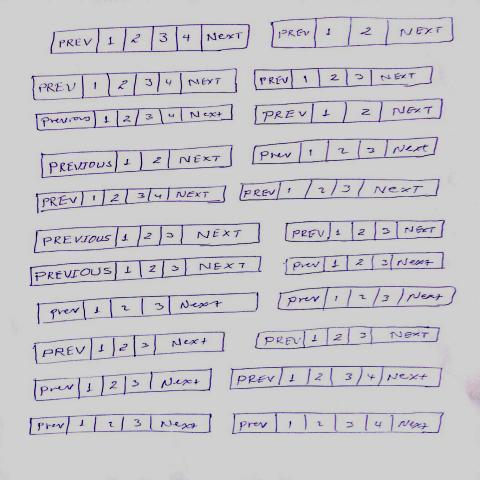 PREV 1 2 3 4 Next
PREV 1 2 NEXT
PREV 1 2 3 4 NEXT
PREV 1 2 3 NEXT
Previous 1 2 3 4 Next
PREV 1 2 NEXT
PREVIOUS 1 2 NEXT
Prev 1 2 3 Next
PREV 1 2 3 4 NEXT
PREV 1 2 3 NEXT
PREVIOUS 1 2 3 NEXT
PREV 1 2 3 NEXT
PREVIOUS 1 2 3 NEXT
Prev 1 2 3 Next
Prev 1 2 3 Next
Prev 1 2 3 Next
PREV 1 2 3 Next
PREV 1 2 3 NEXT
Prev 1 2 3 Next
PREV 1 2 3 4 Next
Prev 1 2 3 Next
Prev 1 2 3 4 Next